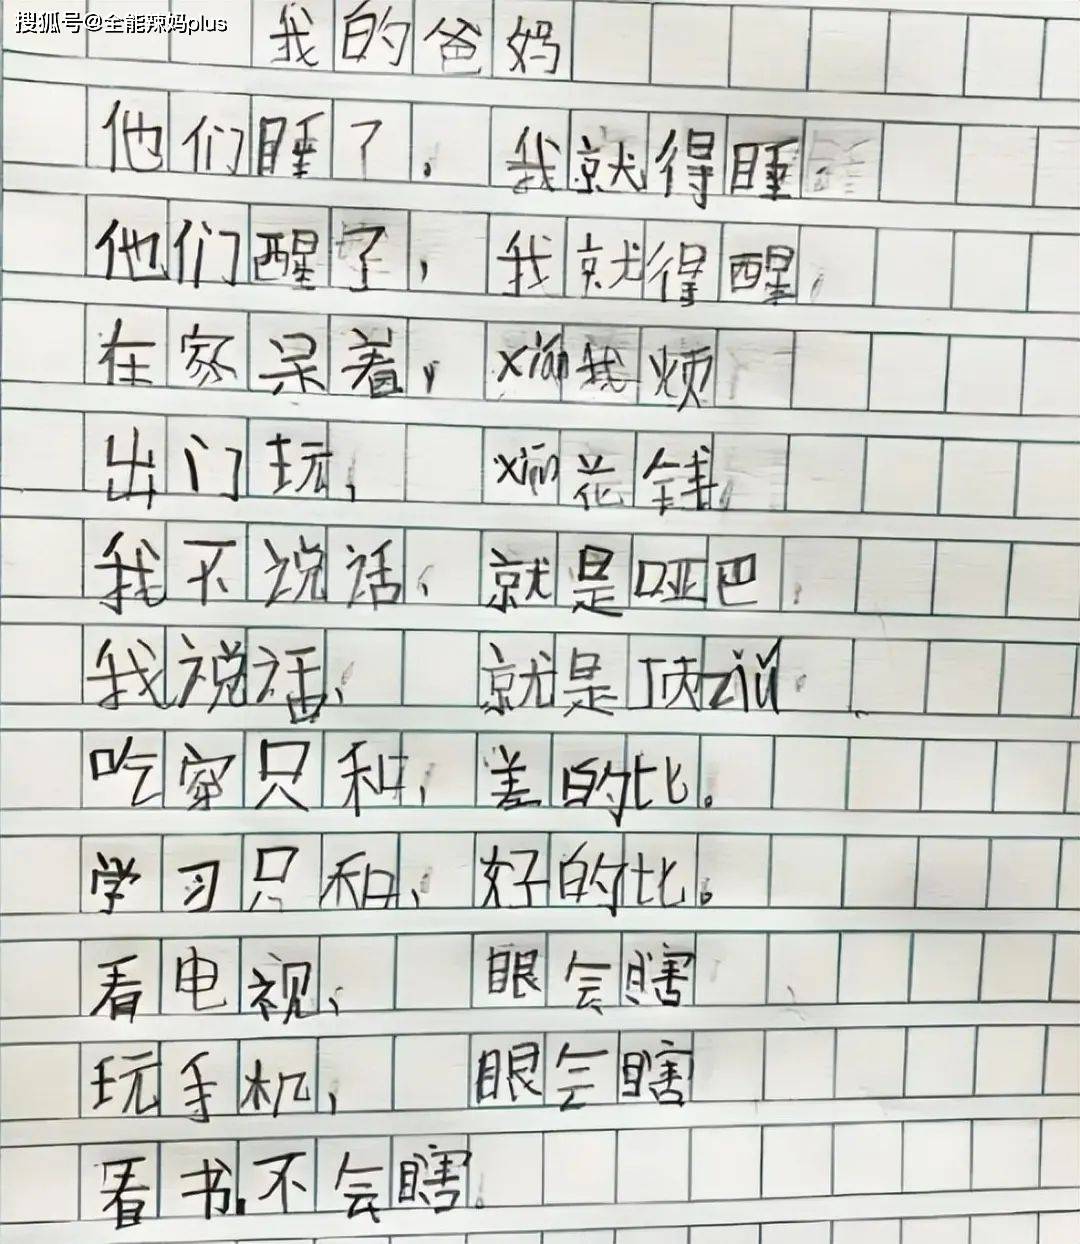 搜狐号@全能辣妈plus
我的爸妈
他们睡了，我就得睡
他们醒了，我就得醒，
在家呆着，xián我烦
出门玩，xián花钱，
我不说话，就是哑巴，
我说话，就是顶zuǐ，
吃穿只和，差的比。
学习只和，好的比。
看电视，眼会瞎
玩手机，眼会瞎
看书，不会瞎。